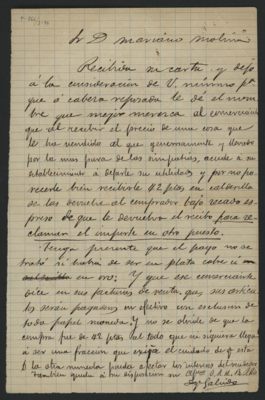 Sr D. Mariano Molina
Recibida su carta y dejo
á la consideración de V. mismo pª
que á cabeza reposada le dé el nom
bre que mejor merezca al comerciante
que al recibir el precio de una cosa que
le ha vendido al que generosamente y llevado
por la mas pura de las simpatias, acude a su
establecimiento á dejarle su utilidad y por no pa
recerle bien recibirle 42 ptas en calderilla
se las devuelve al comprador bajo recado es
preso de que le devuelva el recibo para re
clamar el importe en otro puesto.
Tenga presente que el pago no se
trató si habia de ser en plata cobre ú
en oro; Y que ese comerciante
dice en sus facturas de venta, que sus artícu
los serán pagados en efectivo con esclusion de
todo papel moneda. Y no se olvide de que la
compra fué de 42 ptas al todo que ni siquiera llegó
á ser una fraccion que exija el cuidado de qª esta
ú la otra moneda pueda afectar los intereses del vendedor
Tambien queda á su disposicion su afmo
Galindo